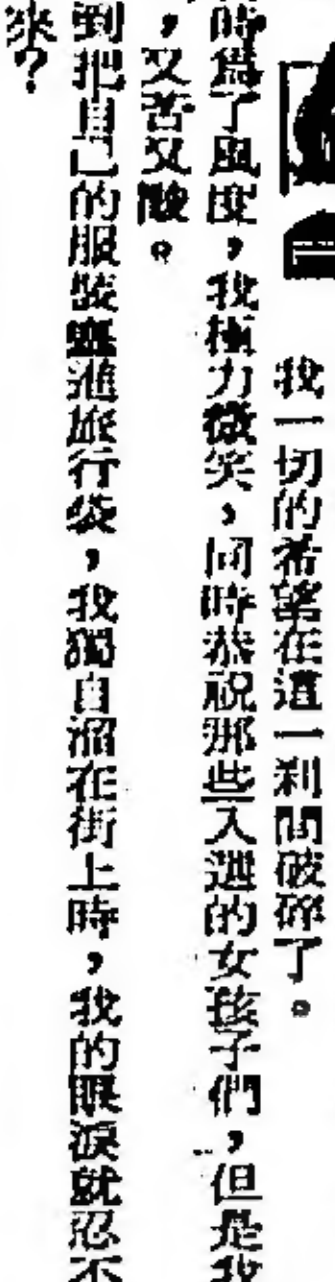 我一切的希望在這一剎間破碎了。
時為了風度，我極力微笑，同時恭祝那些入選的女孩子們，但是我
，又苦又酸。
到把自己的服裝塞進旅行袋，我獨自溜在街上時，我的眼淚就忍不
來？